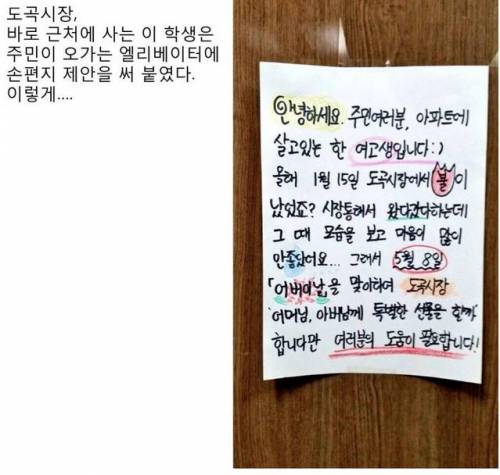 도곡시장,
바로 근처에 사는 이 학생은
주민이 오가는 엘리베이터에
손편지 제안을 써 붙였다.
이렇게....
안녕하세요. 주민여러분, 아파트에
살고있는 한 여고생입니다:)
올해 1월 15일 도곡시장에서 불이
났었죠? 시장통해서 왔다갔다하는데
그 때 모습을 보고 마음이 많이
안좋았어요... 그래서 5월 8일
「어버이날」을 맞이하여 도곡시장
어머님, 아버님께 특별한 선물을 할까
합니다만 여러분의 도움이 필요합니다!